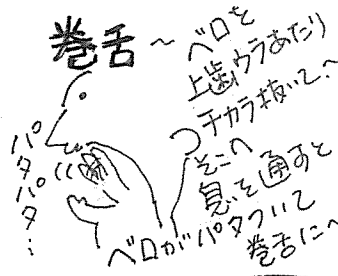 巻舌〜
ベロを
上歯ウラあたり
チカラ抜いて、〜
つ
そこへ
息を通すと
ベロがパタついて
巻舌に〜
パタパタ…